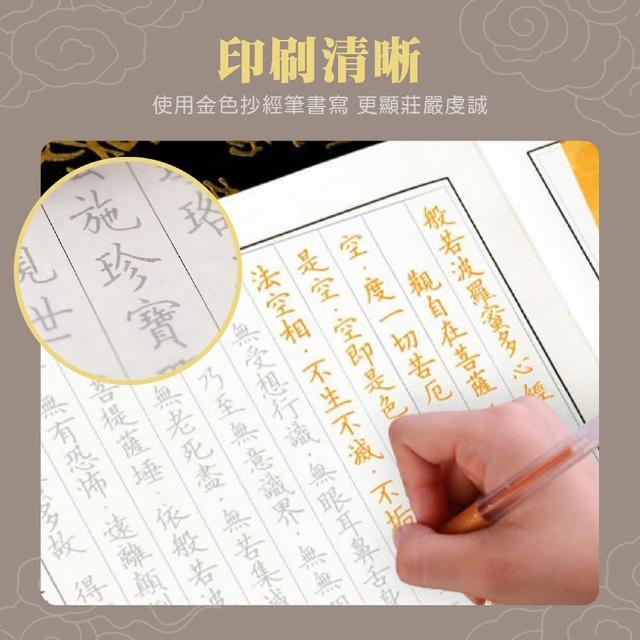 印刷清晰
使用金色抄經筆書寫 更顯莊嚴虔誠
施珍寶
見世
般若波羅蜜多心經
觀自在菩薩
空·度一切苦厄
是空·空即是色
法空相·不生不滅·不垢
無受想行識·無眼耳鼻舌身
乃至無意識界·無無
無老死盡·無苦集滅
菩提薩埵·依般若波
無有恐怖·遠離顛
多故 得